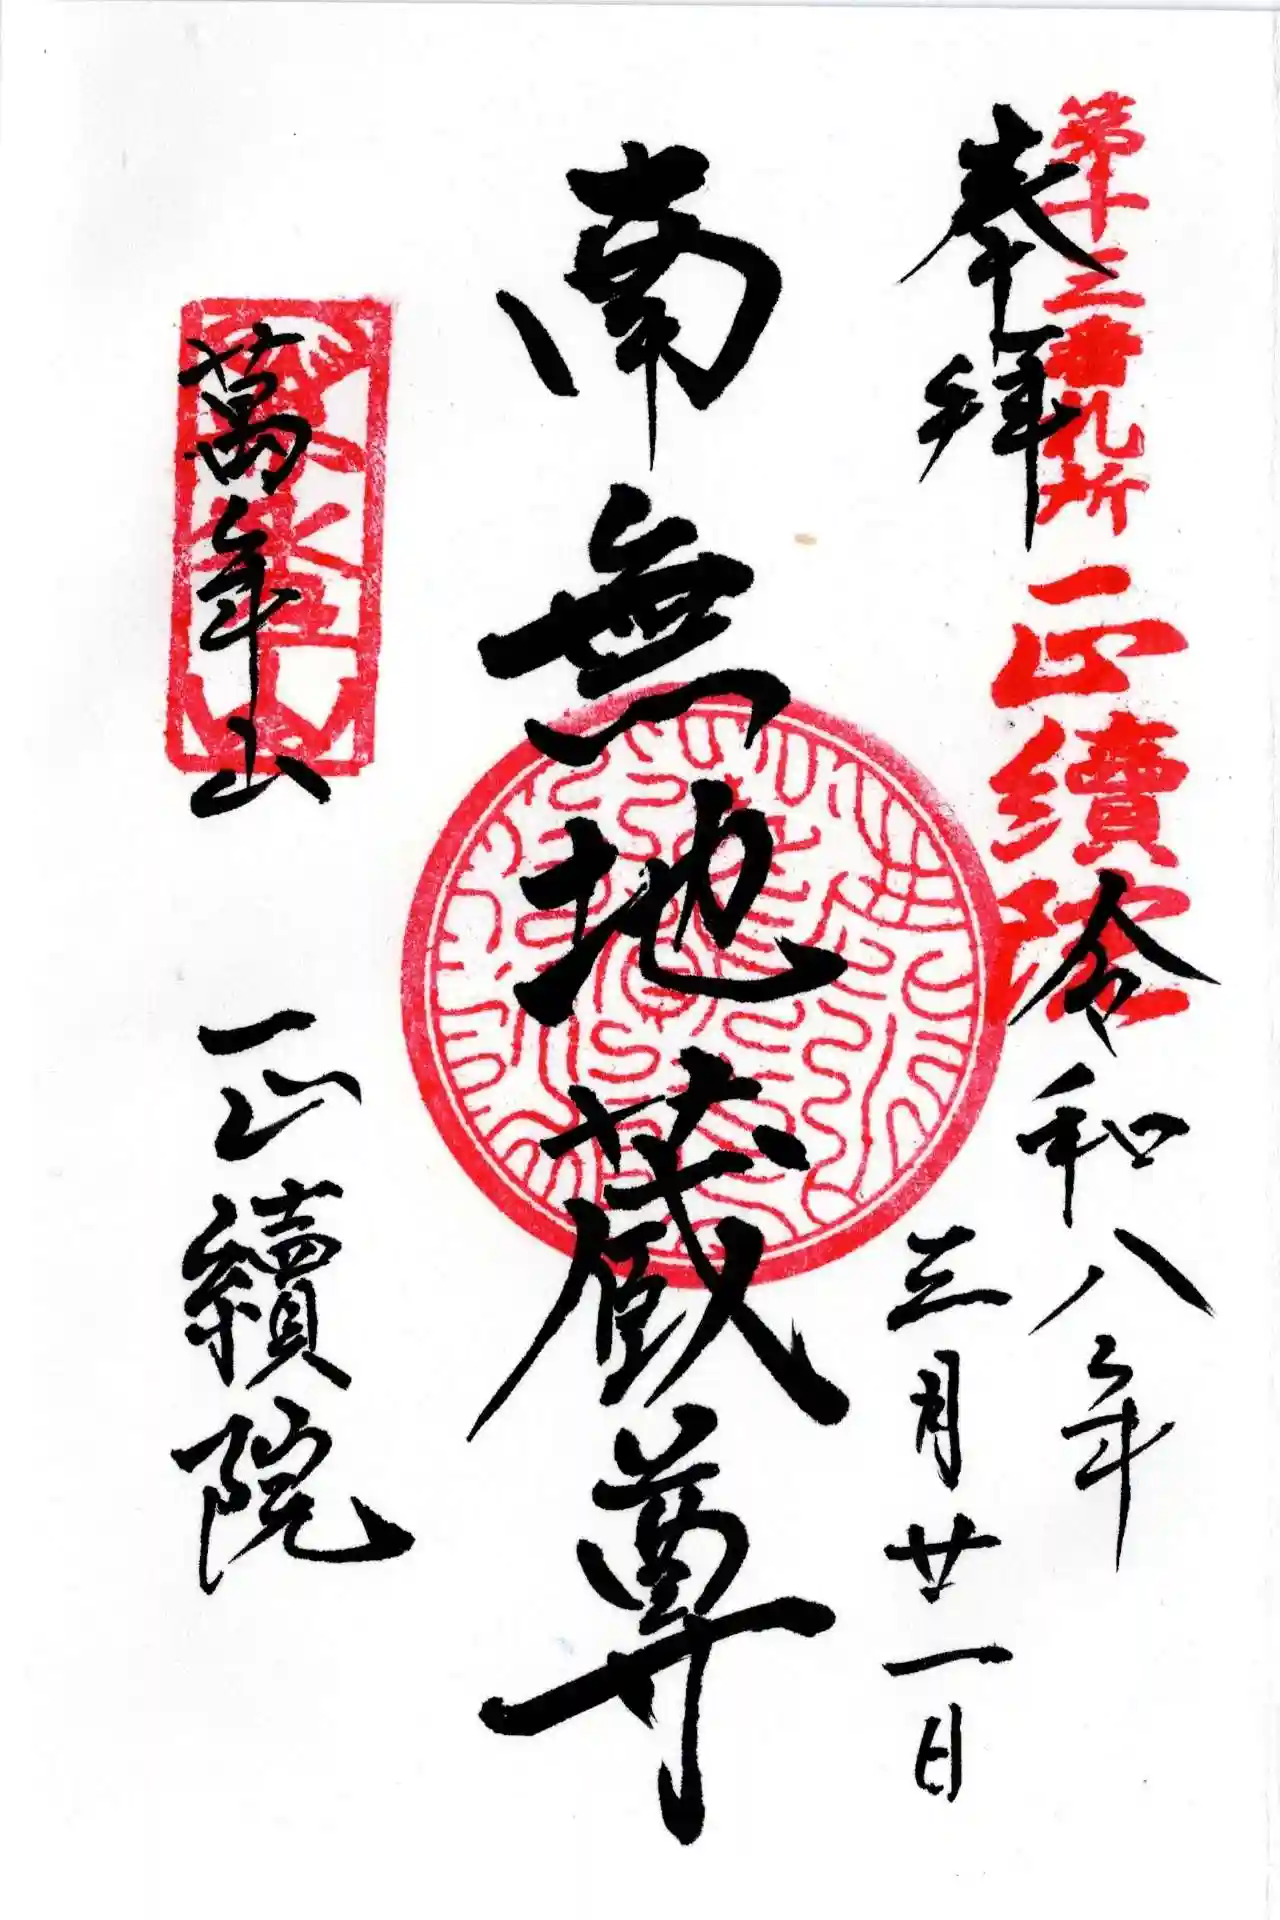 第十三番札所 正續院
奉拜
令和八年
三月廿一日
南無地蔵尊
萬年山 正續院